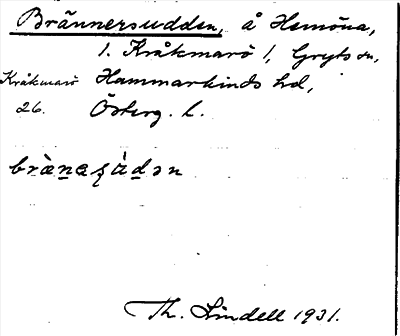 Brännersudden, å Hemöna,
1. Kråkmarö 1, Gryts sn,
Kråkmarö Hammarkinds hd,
26. Österg. l.
Th. Lindell 1931.